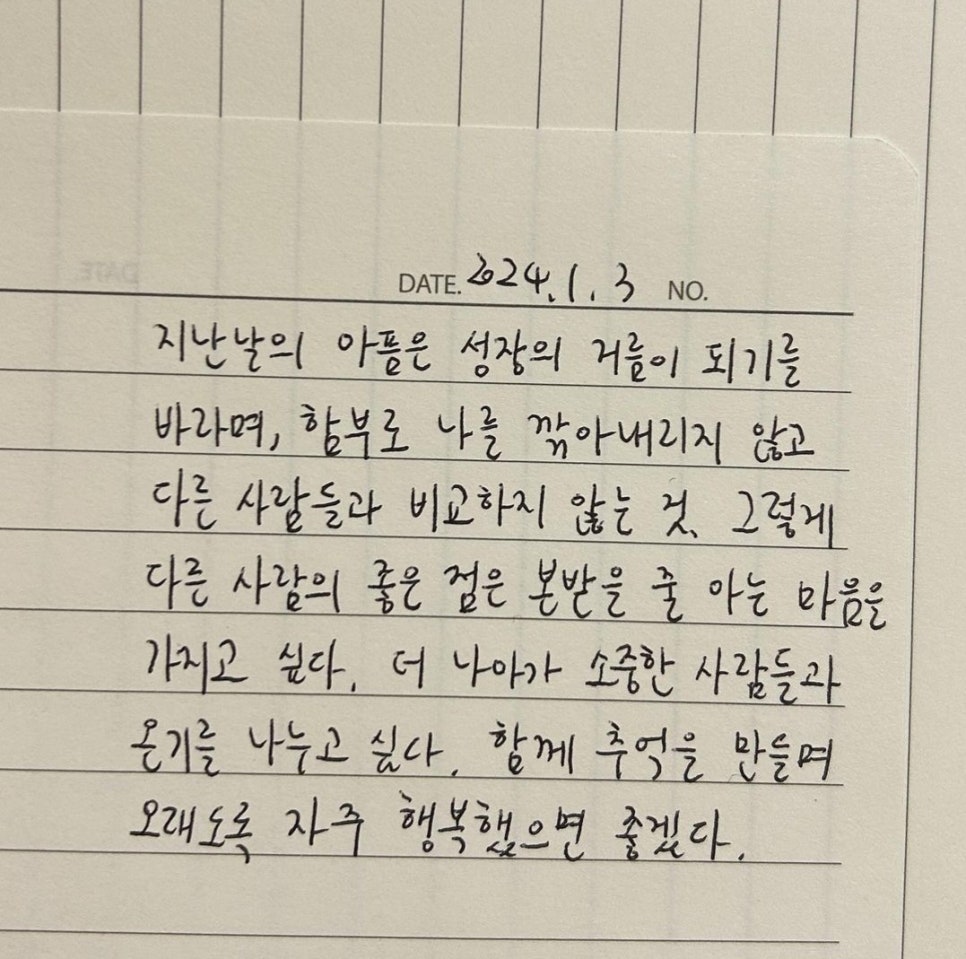 DATE. 2024. 1. 3 NO.
지난날의 아픔은 성장의 거름이 되기를
바라며, 함부로 나를 깎아내리지 않고
다른 사람들과 비교하지 않는 것. 그렇게
다른 사람의 좋은 점은 본받을 줄 아는 마음을
가지고 싶다. 더 나아가 소중한 사람들과
온기를 나누고 싶다. 함께 추억을 만들며
오래도록 자주 행복했으면 좋겠다.